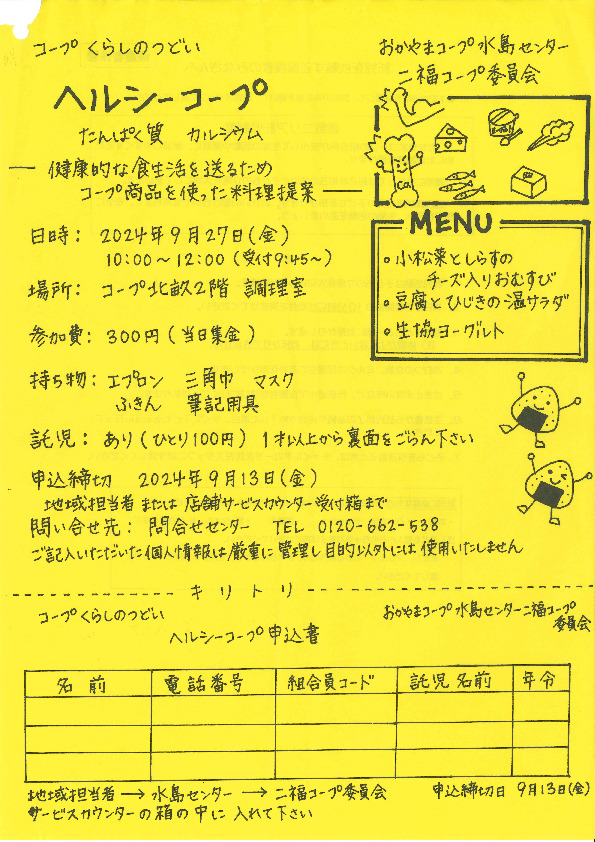 コープくらしのつどい
おかやまコープ水島センター
二福コープ委員会
ヘルシーコープ
たんぱく質 カルシウム
― 健康的な食生活を送るため
コープ商品を使った料理提案 ―
Ca
日時： 2024年9月27日(金)
10:00～12:00（受付9:45～）
場所： コープ北畝2階 調理室
参加費： 300円（当日集金）
MENU
・小松菜としらすの
チーズ入りおむすび
・豆腐とひじきの温サラダ
・生協ヨーグルト
持ち物： エプロン 三角巾 マスク
ふきん 筆記用具
託児： あり（ひとり100円） 1才以上から裏面をごらん下さい
申込締切 2024年9月13日(金)
地域担当者または店舗サービスカウンター受付箱まで
問い合せ先： 問合せセンター TEL 0120-662-538
ご記入いただいた個人情報は厳重に管理し目的以外には使用いたしません
キリトリ
コープくらしのつどい
おかやまコープ水島センター二福コープ
委員会
ヘルシーコープ申込書
名前 電話番号 組合員コード 託児名前 年令
地域担当者→水島センター→二福コープ委員会 申込締切日 9月13日(金)
サービスカウンターの箱の中に入れて下さい